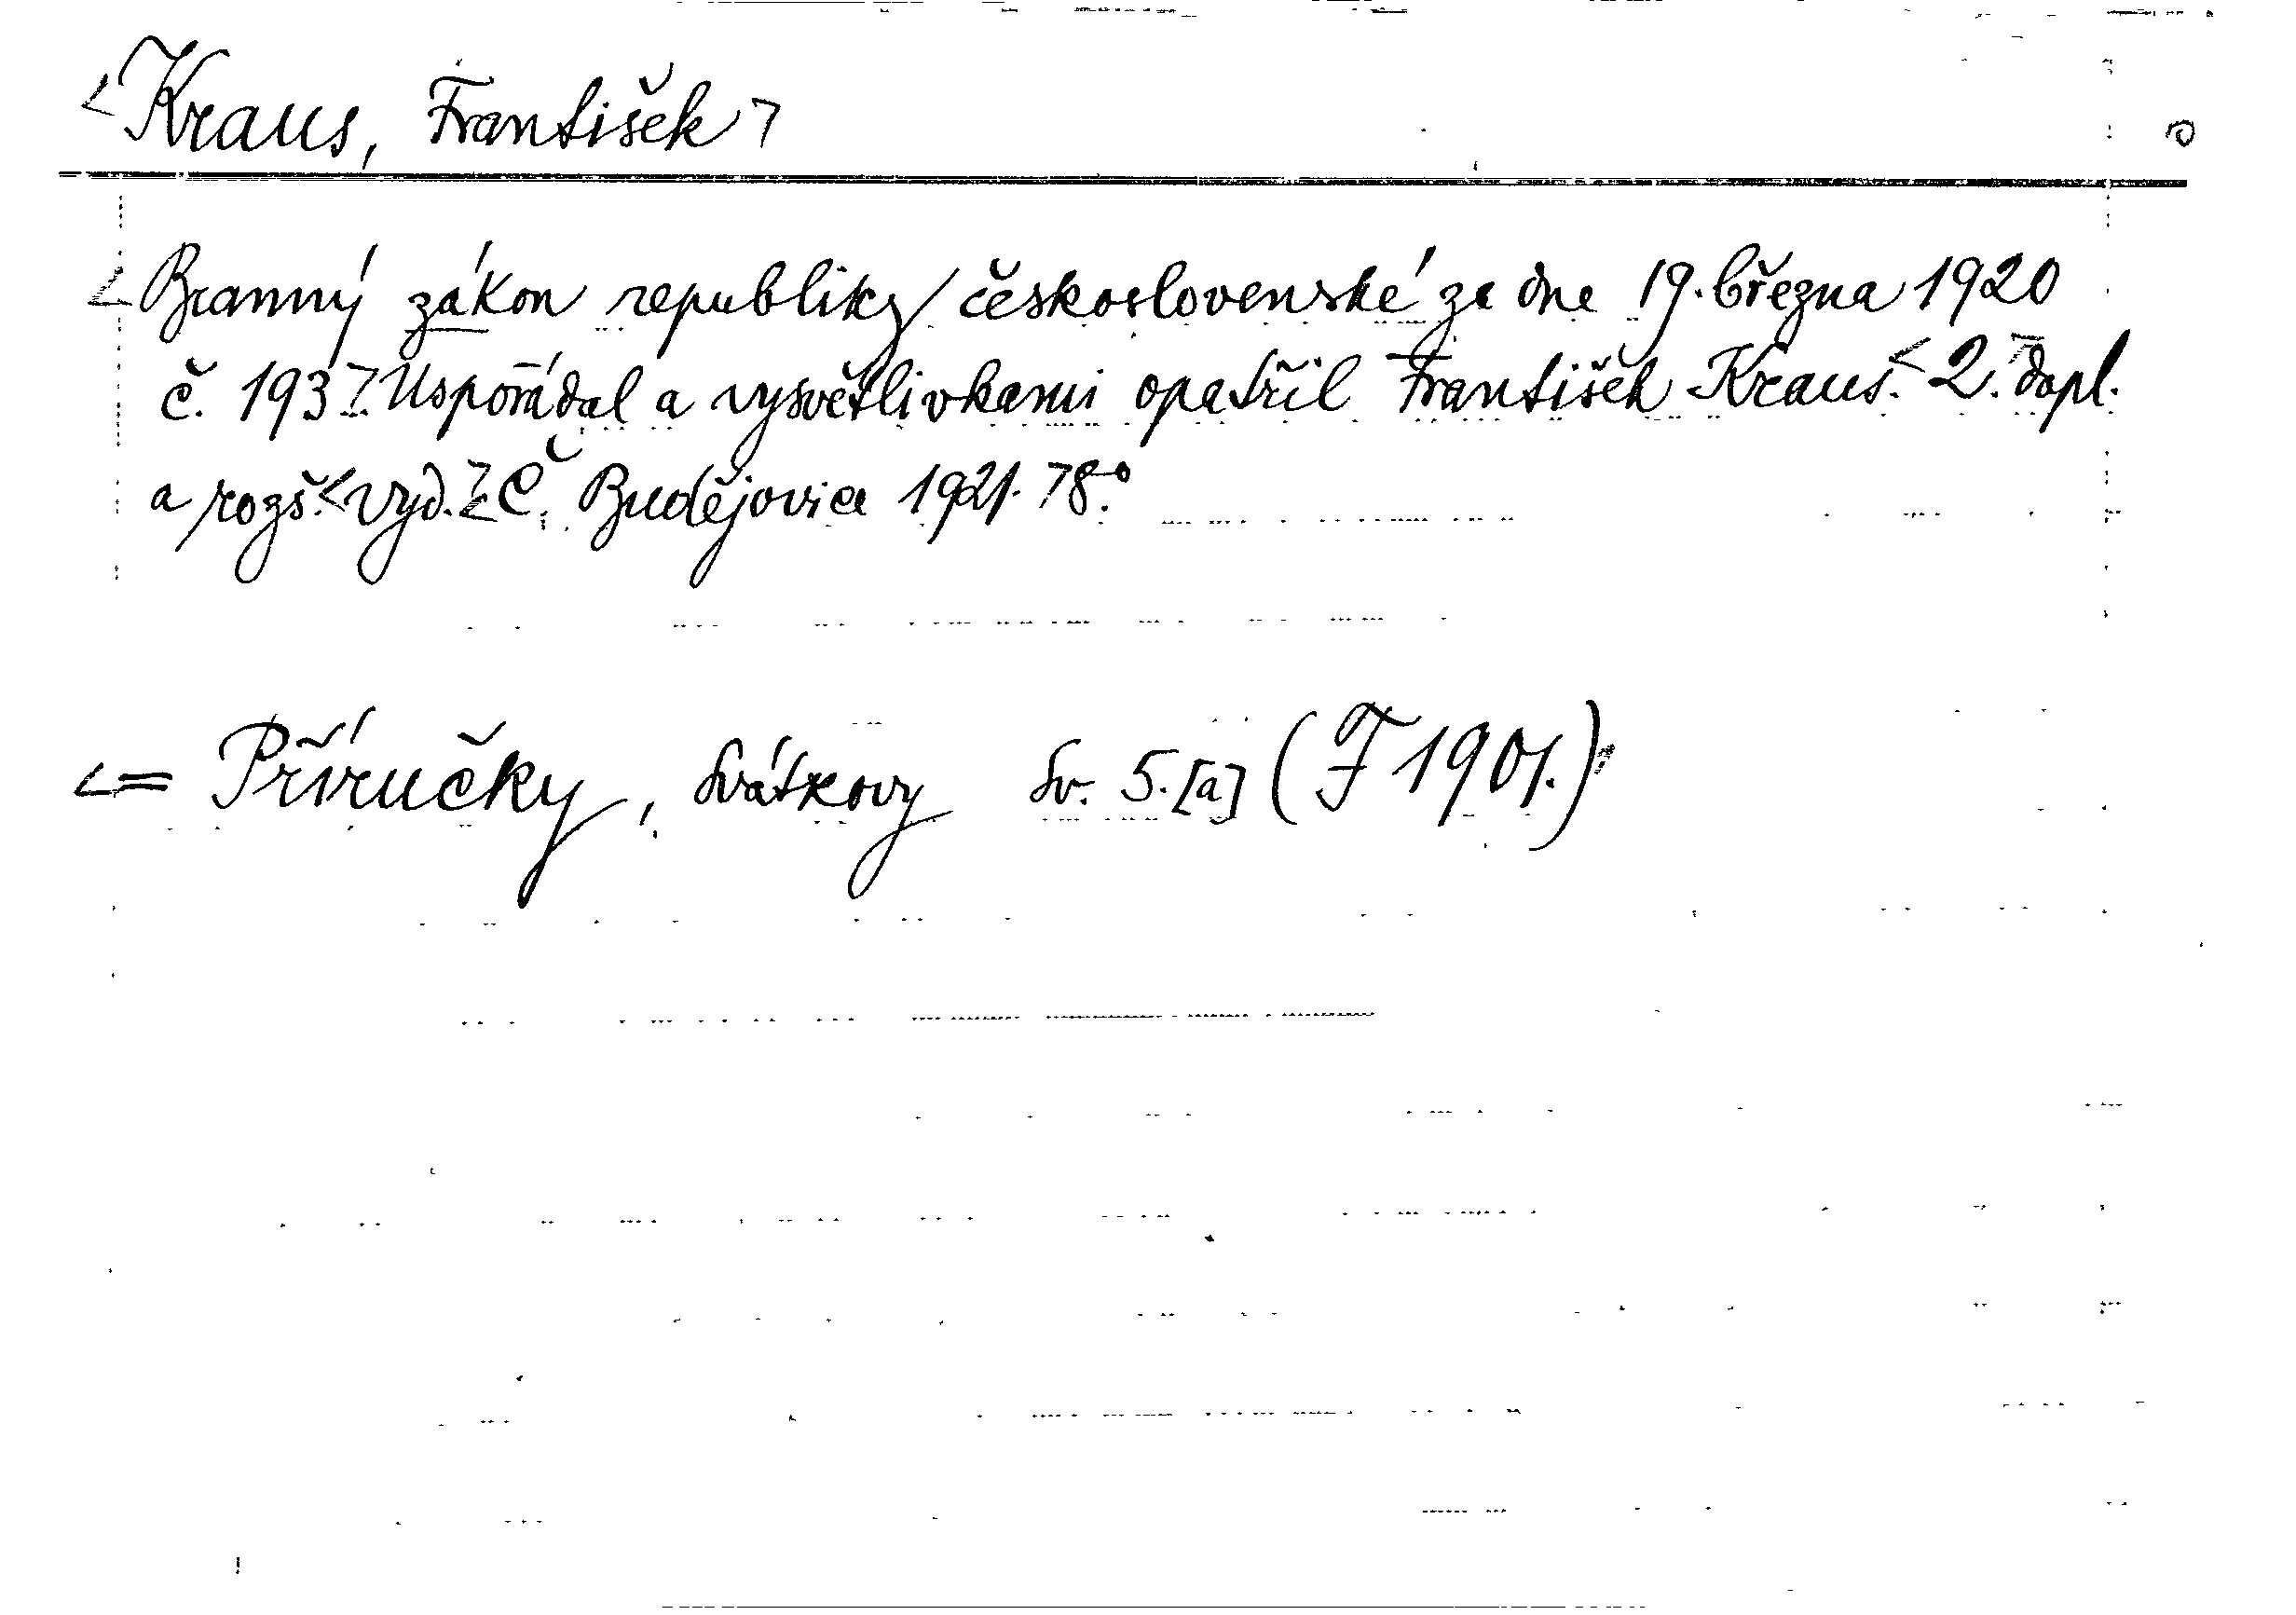 <Kraus, František>
<Branný zákon republiky československé ze dne 19. března 1920
č. 193>. Uspořádal a vysvětlivkami opatřil František Kraus. <2.> dopl.
a rozš. <vyd.> <Č. Budějovice 1921. 8°.
<= Příručky, Svátkovy Sv. 5.[a] (F 1901.)>